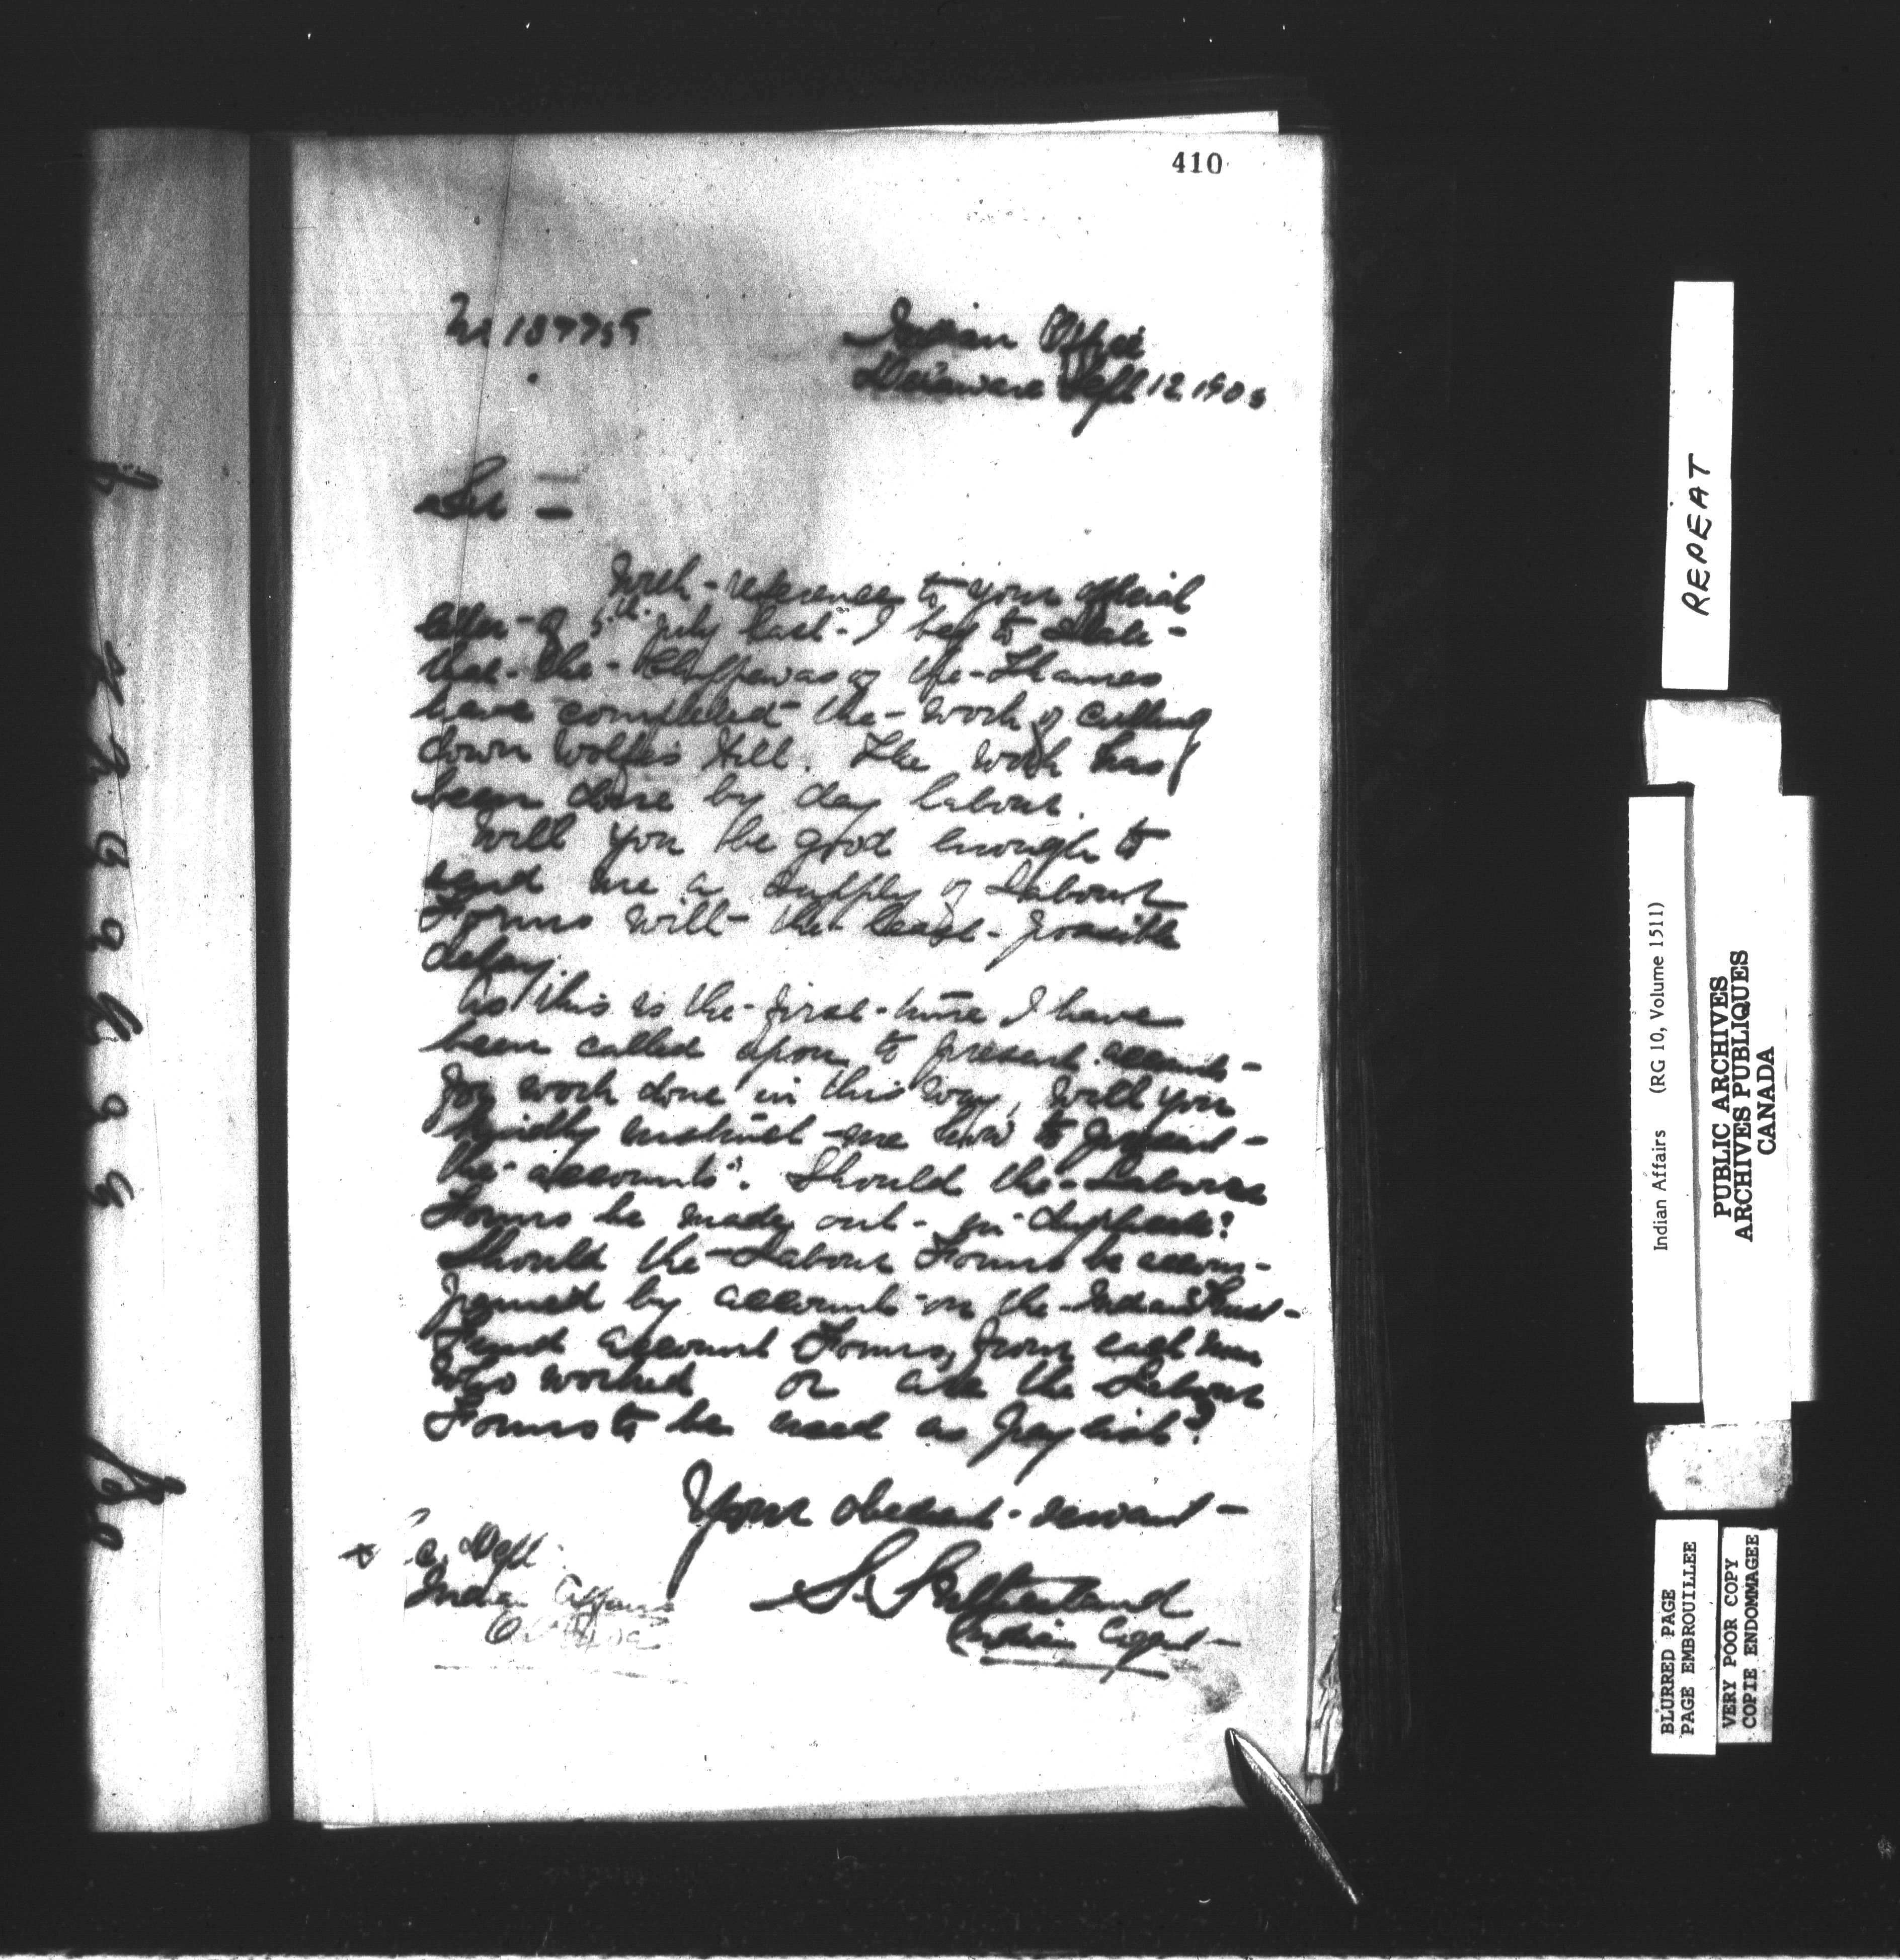 410
No 187755
Indian Office
Delaware Sept 12 190
Sir =
With reference to your official
letter of 5th July last I beg to state
that the Chippewas of the Thames
have completed the work of cutting
down Wolfe's Hill. The work has
been done by day labour.
Will you be good enough to
send me a supply of Labour
Forms with the least possible
delay.
As this is the first time I have
been called upon to present accounts
for work done in this way, will you
kindly instruct me how to present
the accounts. Should the Labour
Forms be made out in duplicate?
Should the Labour Forms be accom-
panied by accounts on the Indian Trust
Fund account Forms, from each man
who worked or are the Labour
Forms to be used as Paylist?
Your obedient servant
S. Sutherland
Indian Agent
Dept
Indian Affairs
Ottawa
REPEAT
Indian Affairs (RG 10, Volume 1511)
PUBLIC ARCHIVES
ARCHIVES PUBLIQUES
CANADA
BLURRED PAGE
PAGE EMBROUILLEE
VERY POOR COPY
COPIE ENDOMMAGEE